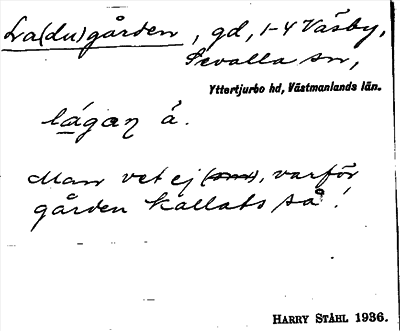 Lra(du)gården, gd, 1-4 Väsby,
Sevalla sn,
Yttertjurbo hd, Västmanlands län.
lágan å.
Man vet ej, varför
gården kallats så!
HARRY STÅHL 1936.